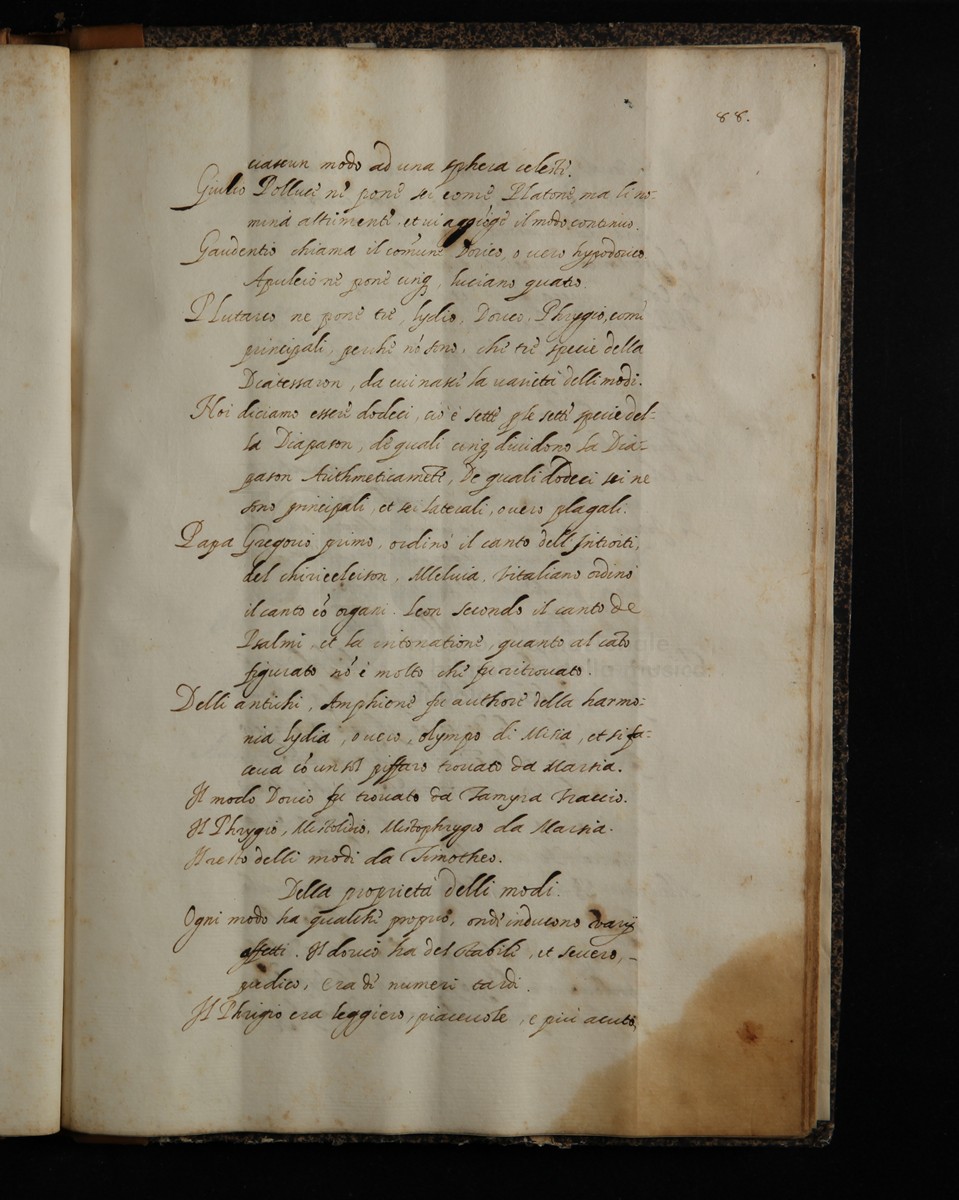 88.
ciascun modo ad una sphera celeste.
Giulio Polluce ne pone sei come Platone, ma li no-
mina altrimenti, et vi aggiōge il modo continuo.
Gaudentio chiama il comūne Dorico, o vero hypodorico.
Apuleio ne pone cinq, luciano quatro.
Plutarco ne pone tre, lydio, Dorico, Phrygio, come
principali, perche nō sono, che tre specie della
Diatessaron, da cui nasce la varieta delli modi.
Noi diciamo essere dodeci, cio è sette p le sette specie del-
la Diapason, de quali cinq dividono la Dia-
pason Arithmeticamēte, De quali dodeci sei ne
sono principali, et sei laterali, overo plagali.
Papa Gregorio primo, ordinò il canto dell Introiti,
del chirieeleison, Alleluia, Vitaliano ordinò
il canto cō organi. Leon secondo il canto de
Psalmi, et la intonatione, quanto al cāto
figurato nō è molto che fu ritrovato.
Delli antichi, Amphione fu authore della harmo-
nia lydia, overo, olympo di Misia, et si fa-
ceva cō un sol piffaro trovato da Marsia.
Il modo Dorio fu trovato da Tamyra Traccio.
Il Phrygio, Mistolidio, Mistophrygio da Marsia.
Il resto delli modi da Timotheo.
Della proprietà delli modi.
Ogni modo ha qualche proprio, onde inducono varij
affetti. Il dorico ha del stabile, et severo,
pudico, era di numeri tardi.
Il Phrigio era leggiero, piacevole, e più acuto,